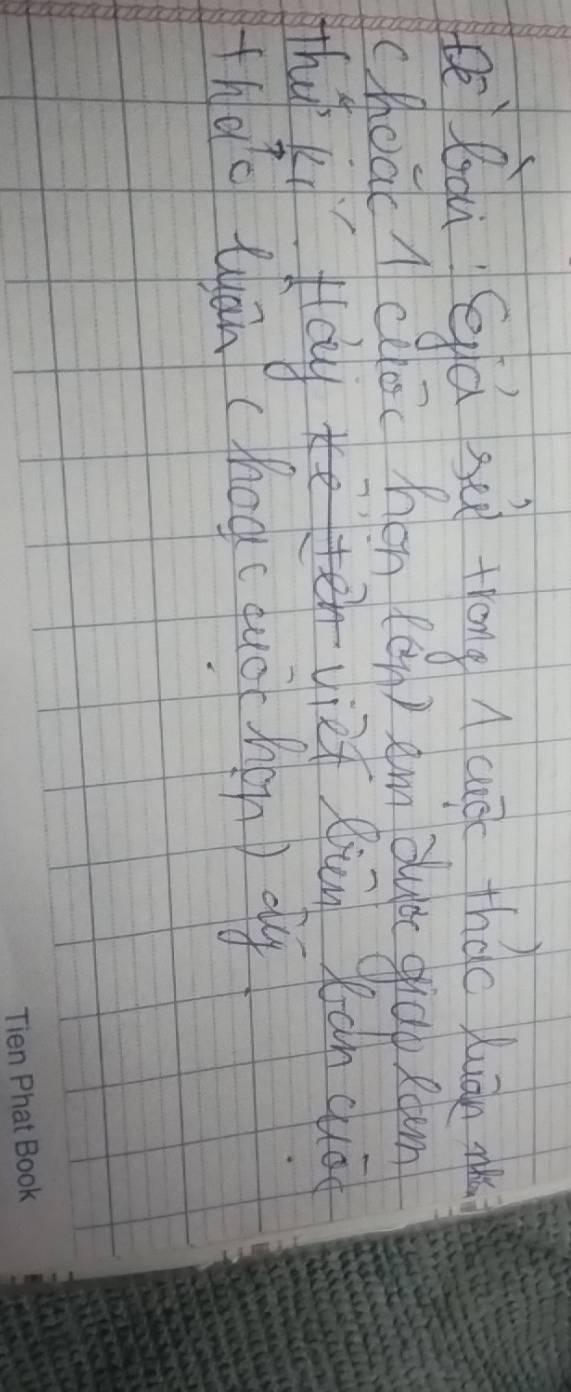 Đề bài: Giả sử trong 1 cuộc thảo luận nhóm
(hoặc 1 cuộc họp lớp) em được giao làm
thư kí. Hãy kể tên viết biên bản cuộc
thảo luận (hoặc cuộc họp) ấy.
Tien Phat Book